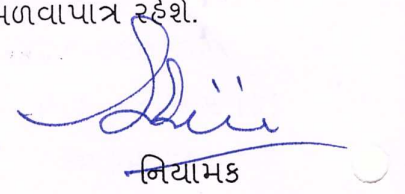 મળવાપાત્ર રહેશે.
નિયામક